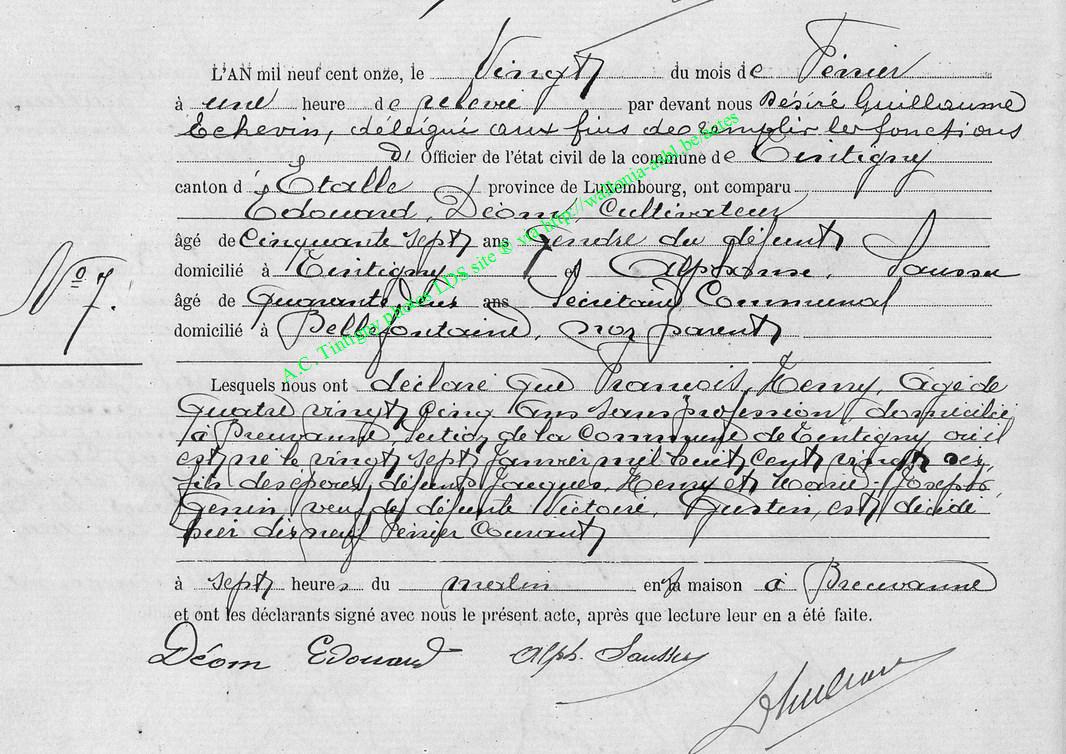 L'AN mil neuf cent onze, le Vingt du mois de Février
à une heure de relevée par devant nous Désiré Guillaume
Echevin, délégué aux fins de remplir les fonctions
d' Officier de l'état civil de la commune de Tintigny
canton d' Etalle province de Luxembourg, ont comparu
Edouard, Déom, Cultivateur
âgé de Cinquante sept ans Gendre du défunt
domicilié à Tintigny et Alphonse, Sausse
âgé de Quarante ans Secrétaire Communal
domicilié à Bellefontaine, non parent
N° 7.
Lesquels nous ont déclaré que François, Henry, âgé de
Quatre vingt cinq ans sans profession domicilié
à Breuvanne, section de la Commune de Tintigny où il
est né le vingt sept Janvier mil huit cent vingt six,
fils des époux défunts Jacques, Henry et Marie-Josephe
Genin veuf de défunte Victoire, Gustin, est décédé
hier dix neuf Février Courant
à sept heures du matin en sa maison à Breuvanne
et ont les déclarants signé avec nous le présent acte, après que lecture leur en a été faite.
Déom Edouard Alph. Sausse
A.C. Tintigny photos LDS site ® via http://wallonia-asbl.be/actes